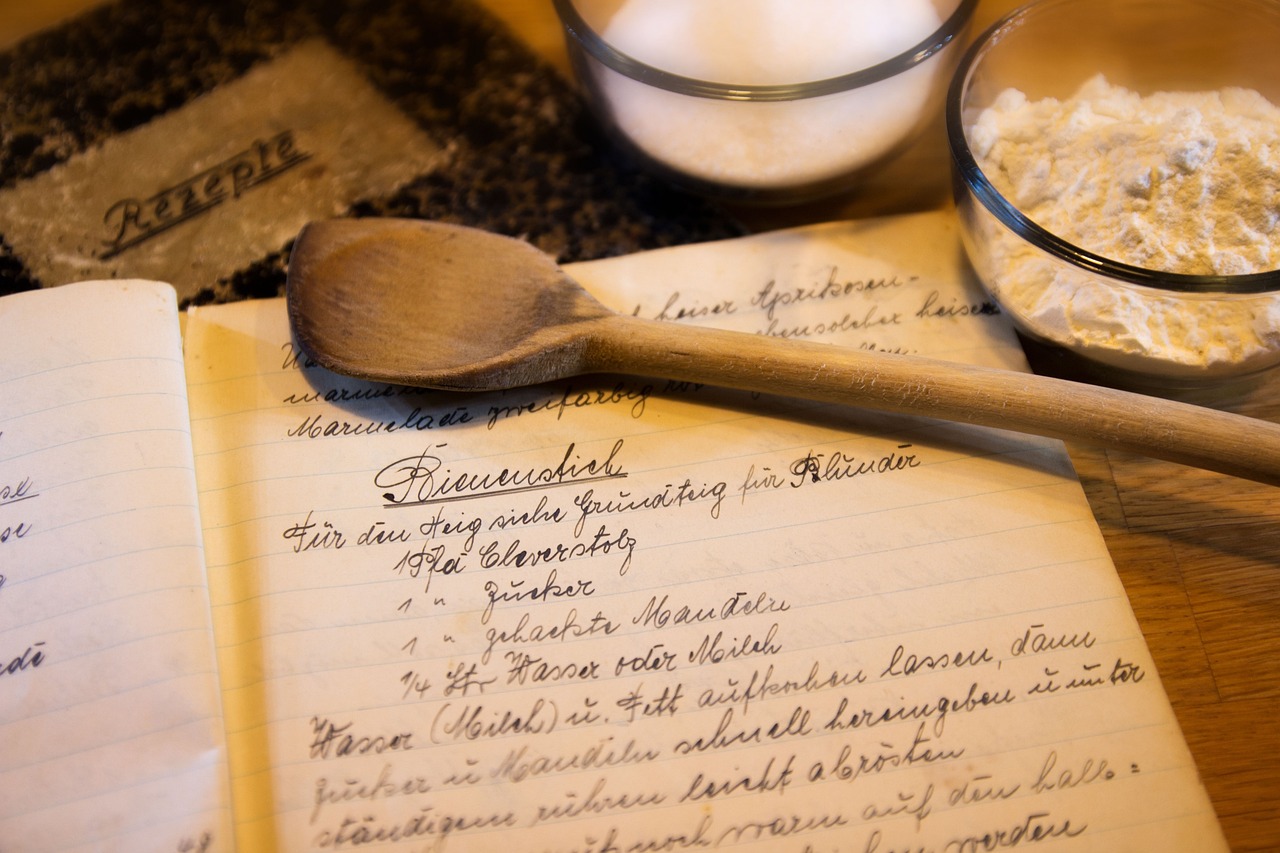 Rezepte
heiser Aprikosen-
ebensolcher heisen
Marmelade zweifarbig
Bienenstich
Für den Teig siehe Grundteig für Plunder
1 Pfd Cleverstolz
1 " Zucker
1 " gehackte Mandeln
1/4 Ltr Wasser oder Milch
Wasser (Milch) u. Fett aufkochen lassen, dann
Zucker u Mandeln schnell hereingeben u unter
ständigem rühren leicht abrösten
noch warm auf den halb-
werden
49